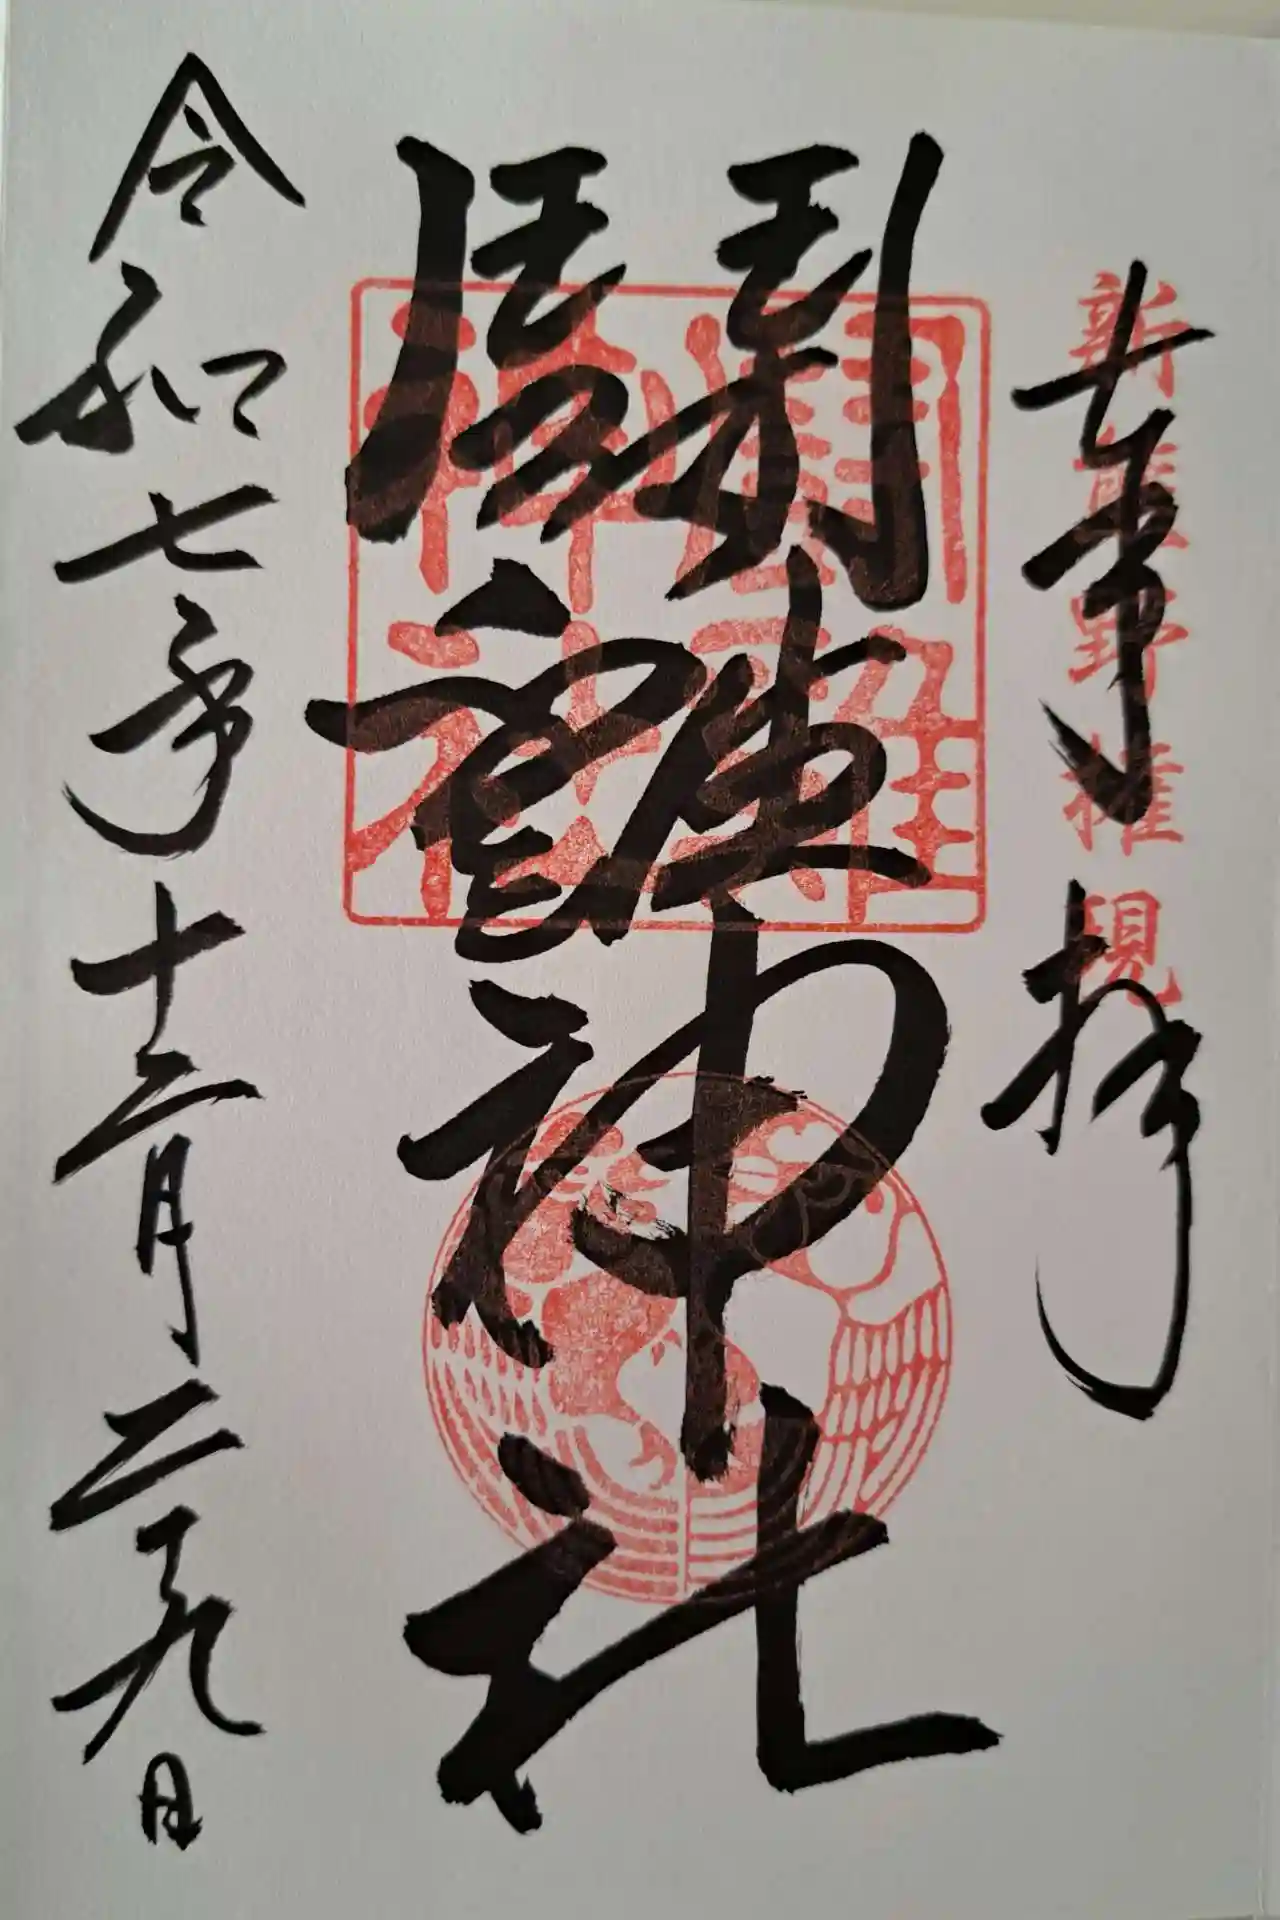 奉拝
新熊野権現
鬪雞神社
鬪雞神社
令和七年十二月二十九日